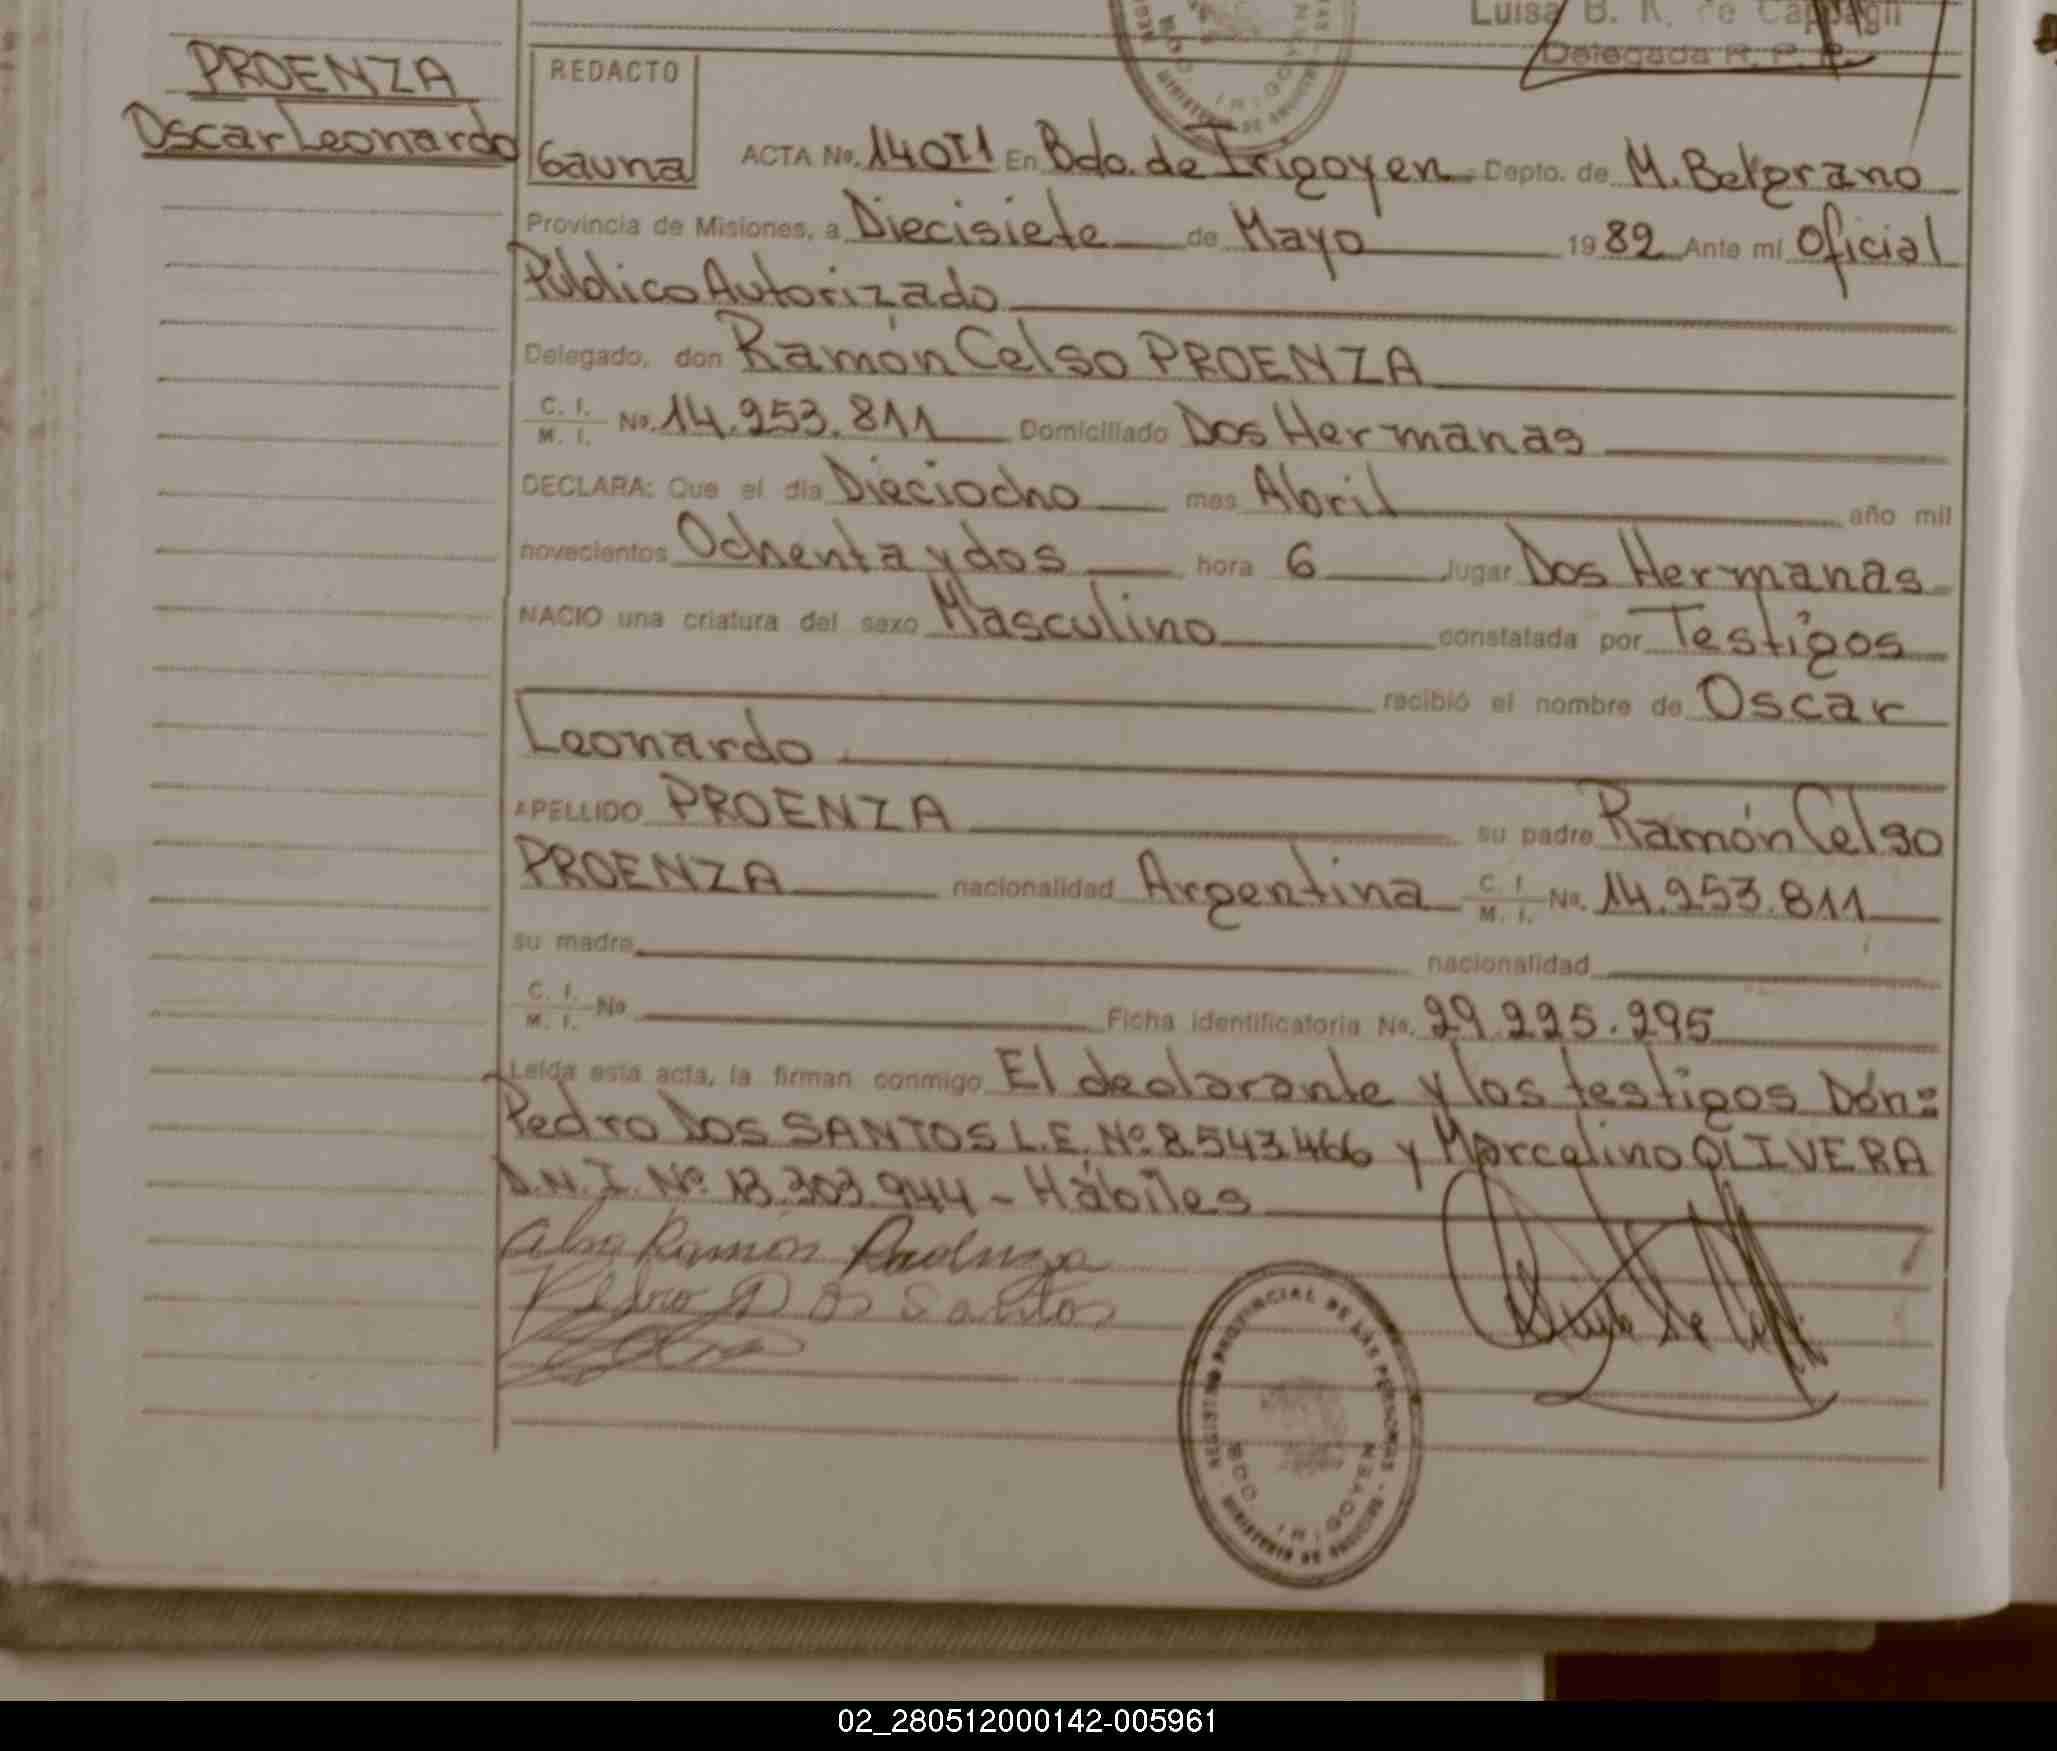 Luisa B. R. de Cappagli
Delegada R. P. P.
PROENZA
Oscar Leonardo
REDACTO
Gauna
ACTA No. 140T1 En Bdo. de Irigoyen Depto. de M. Belgrano
Provincia de Misiones, a Diecisiete de Mayo 1982 Ante mí Oficial
Público Autorizado
Delegado, don Ramón Celso PROENZA
C. I. M. I. No. 14.253.811 Domiciliado Dos Hermanas
DECLARA: Que el día Dieciocho mes Abril año mil
novecientos Ochenta y dos hora 6 lugar Dos Hermanas
NACIO una criatura del sexo Masculino constatada por Testigos
recibió el nombre de Oscar
Leonardo
APELLIDO PROENZA su padre Ramón Celso
PROENZA nacionalidad Argentina C. I. M. I. No. 14.253.811
su madre nacionalidad
C. I. M. I. No Ficha identificatoria No. 29.225.295
Leída esta acta, la firman conmigo El declarante y los testigos Dón:
Pedro Dos SANTOS L.E. Nº 8.543.466 y Marcelino OLIVERA
D.N.I. Nº 13.303.944 - Hábiles
Ramón
Pedro Dos Santos
REGISTRO PROVINCIAL DE LAS PERSONAS - MINISTERIO DE GOBIERNO
BDO. IRIGOYEN
02_280512000142-005961